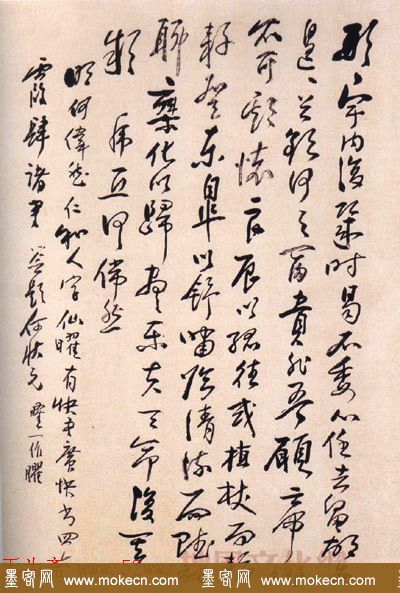 形宇内復幾時曷不委心任去留胡
遑遑兮欲何之富貴非吾願帝
不可期懷良辰以孤往或植杖而
耔登東皋以舒嘯臨清流而賦
聊乘化以歸盡樂夫天命復
疑 何偉然
明何偉然仁和人字仙臞有快書廣快書四六
霞肆諸
墨客网 www.mokecn.com 墨客网 www.mokecn.com